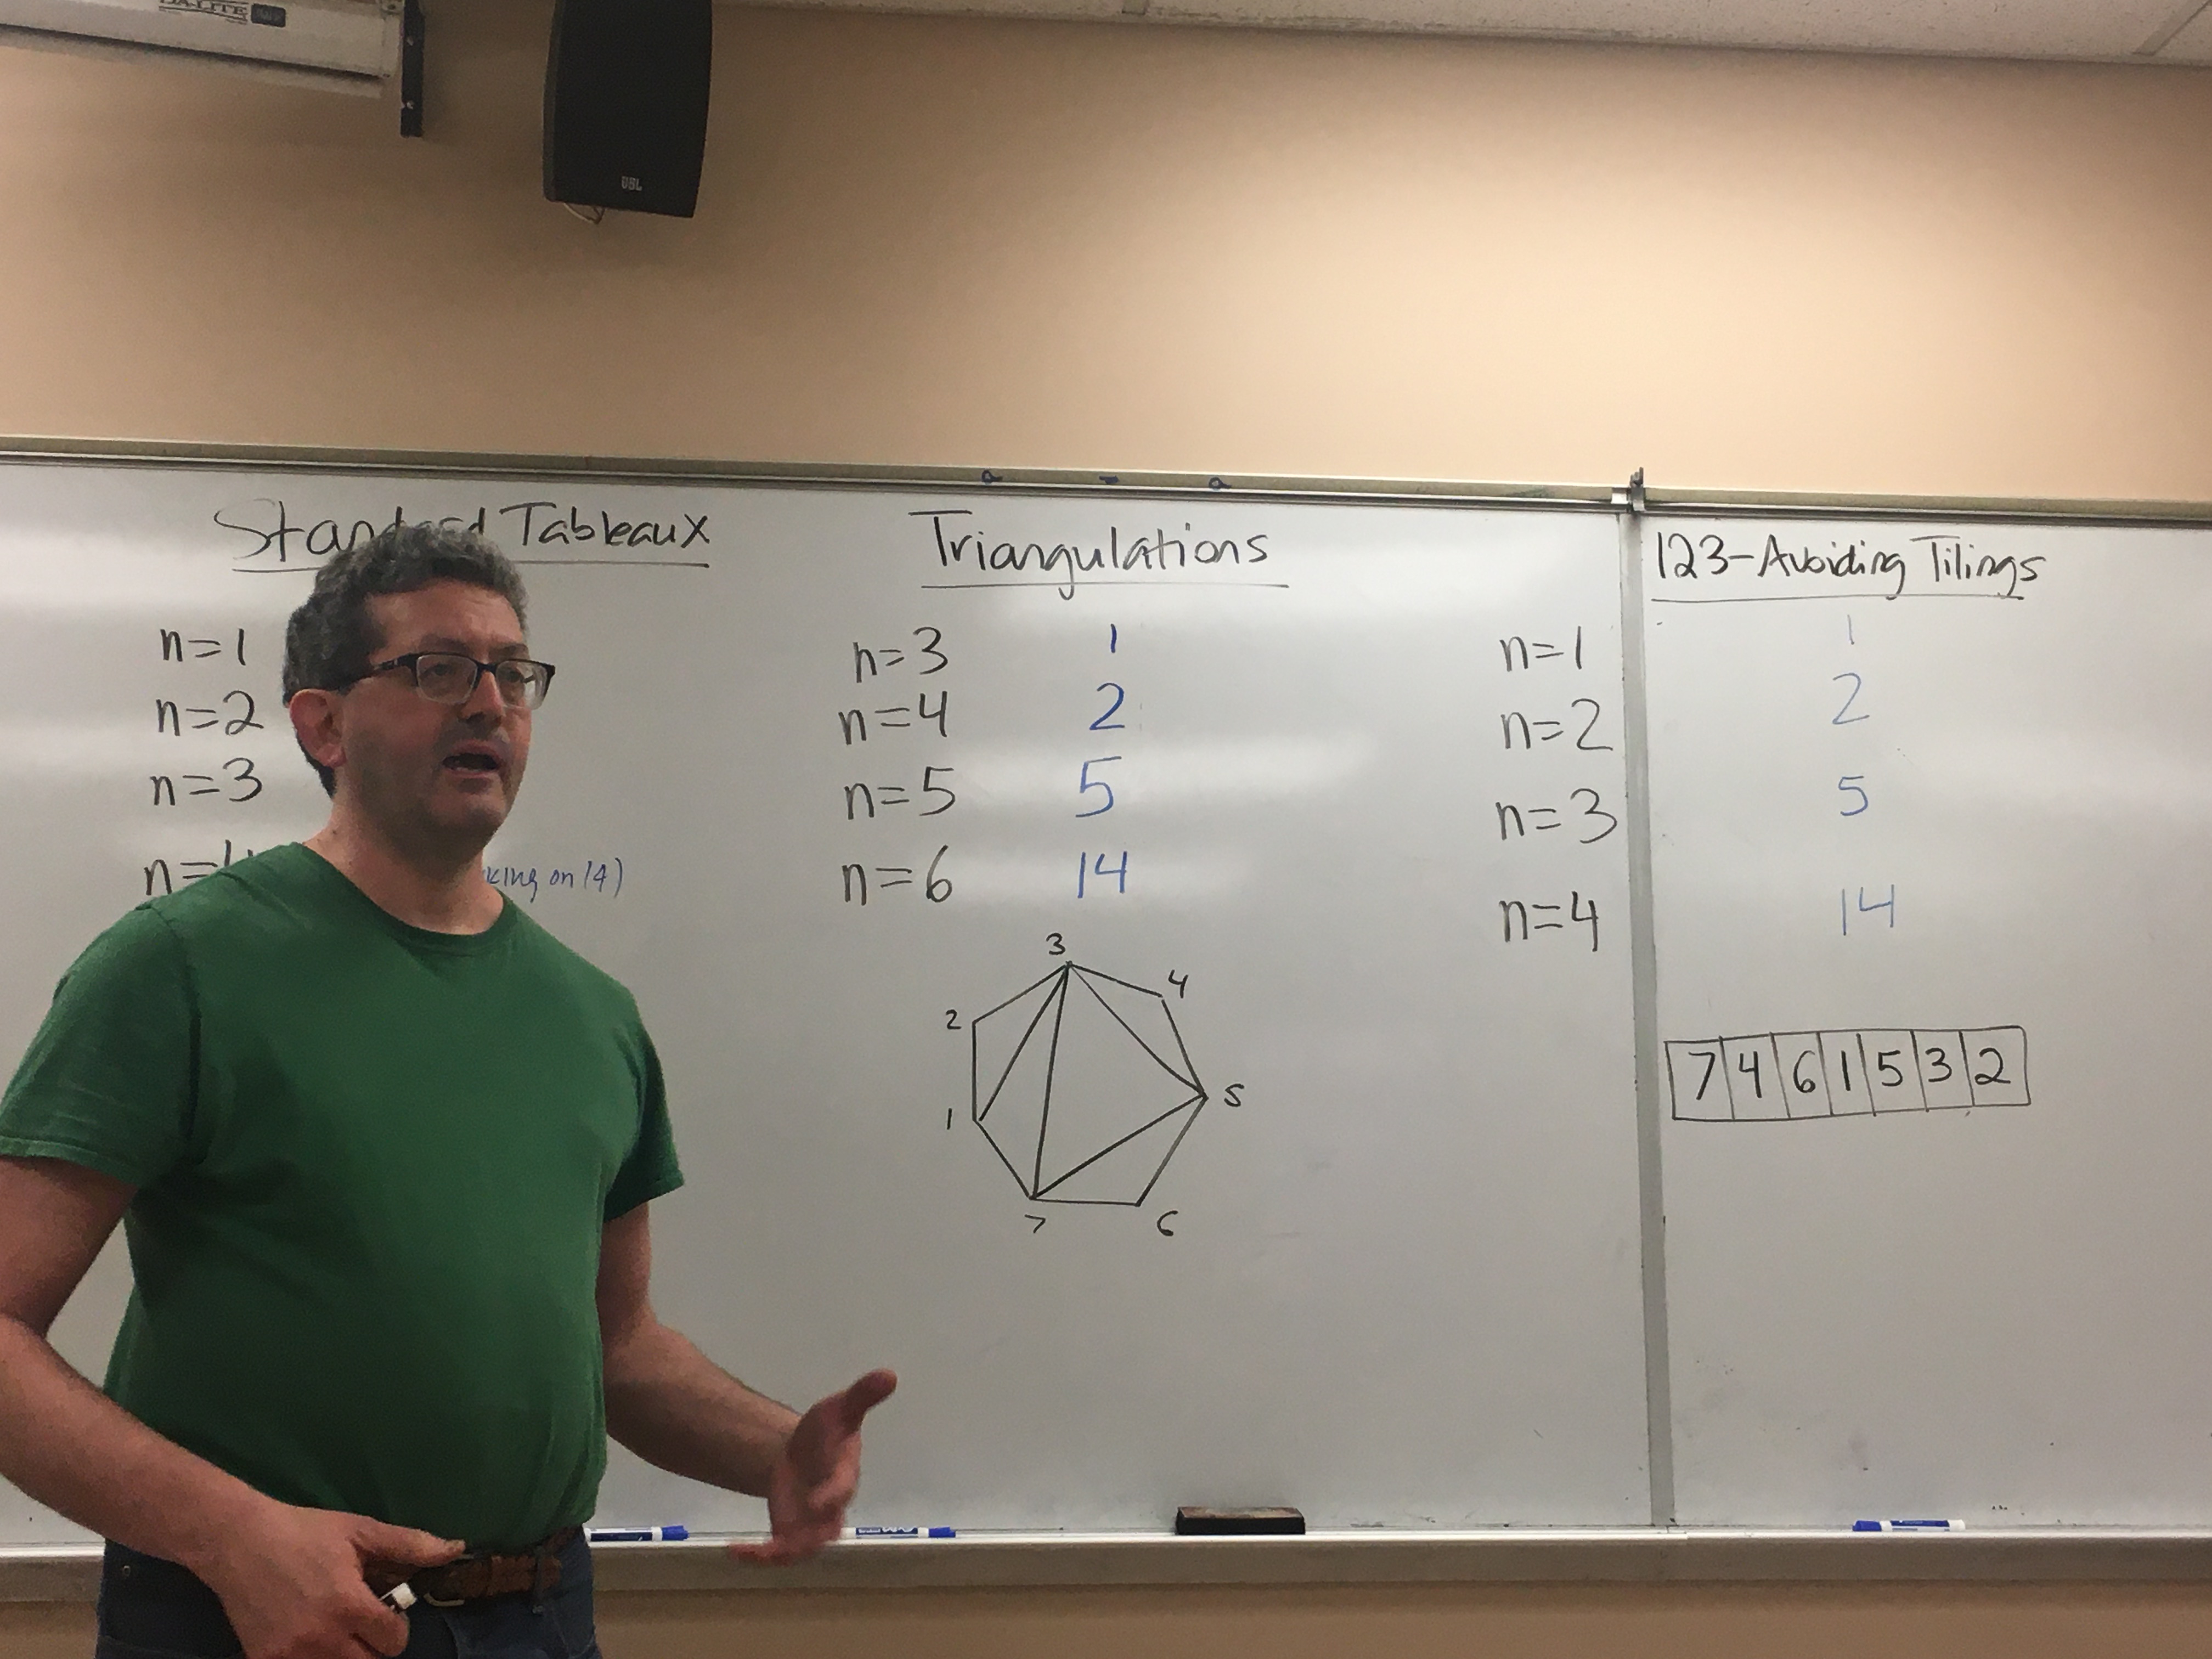 DA-LITE
JBL
Standard Tableaux
n=1
n=2
n=3
n=4
king on 14)
Triangulations
n=3 1
n=4 2
n=5 5
n=6 14
3
4
2
5
1
7
6
123-Avoiding Tilings
n=1 1
n=2 2
n=3 5
n=4 14
7 4 6 1 5 3 2